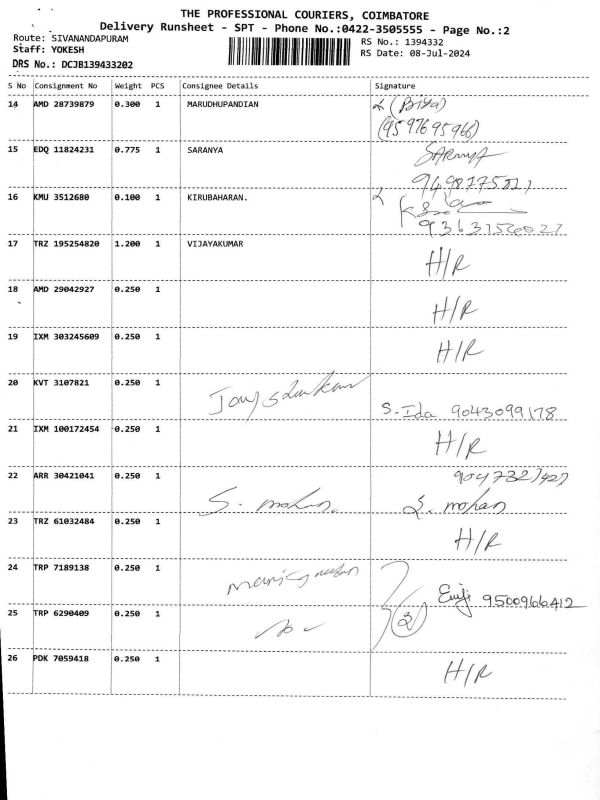 THE PROFESSIONAL COURIERS, COIMBATORE
Delivery Runsheet - SPT - Phone No.:0422-3505555 - Page No.:2
Route: SIVANANDAPURAM
Staff: YOKESH
DRS No.: DCJB139433202
RS No.: 1394332
RS Date: 08-Jul-2024
S No Consignment No Weight PCS Consignee Details Signature
14 AMD 28739879 0.300 1 MARUDHUPANDIAN (Priya)
(9597695966)
15 EDQ 11824231 0.775 1 SARANYA SARANYA
16 KMU 3512680 0.100 1 KIRUBAHARAN.
17 TRZ 195254820 1.200 1 VIJAYAKUMAR H/R
18 AMD 29042927 0.250 1 H/R
19 IXM 303245609 0.250 1 H/R
20 KVT 3107821 0.250 1 S. Ida 9043099178
21 IXM 100172454 0.250 1 H/R
22 ARR 30421041 0.250 1 9047327427
S. mohan. S. mohan
23 TRZ 61032484 0.250 1 H/R
24 TRP 7189138 0.250 1 9500966412
25 TRP 6290409 0.250 1 2
26 PDK 7059418 0.250 1 H/R